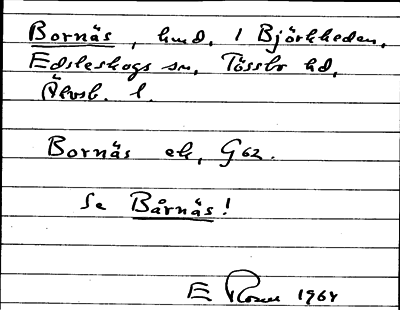 Bornäs, hmd, 1 Björkheden,
Edsleskogs sn, Tössbo hd,
Älvsb. l.
Bornäs ek, G62.
Se Bårnäs!
E Rosell 1964